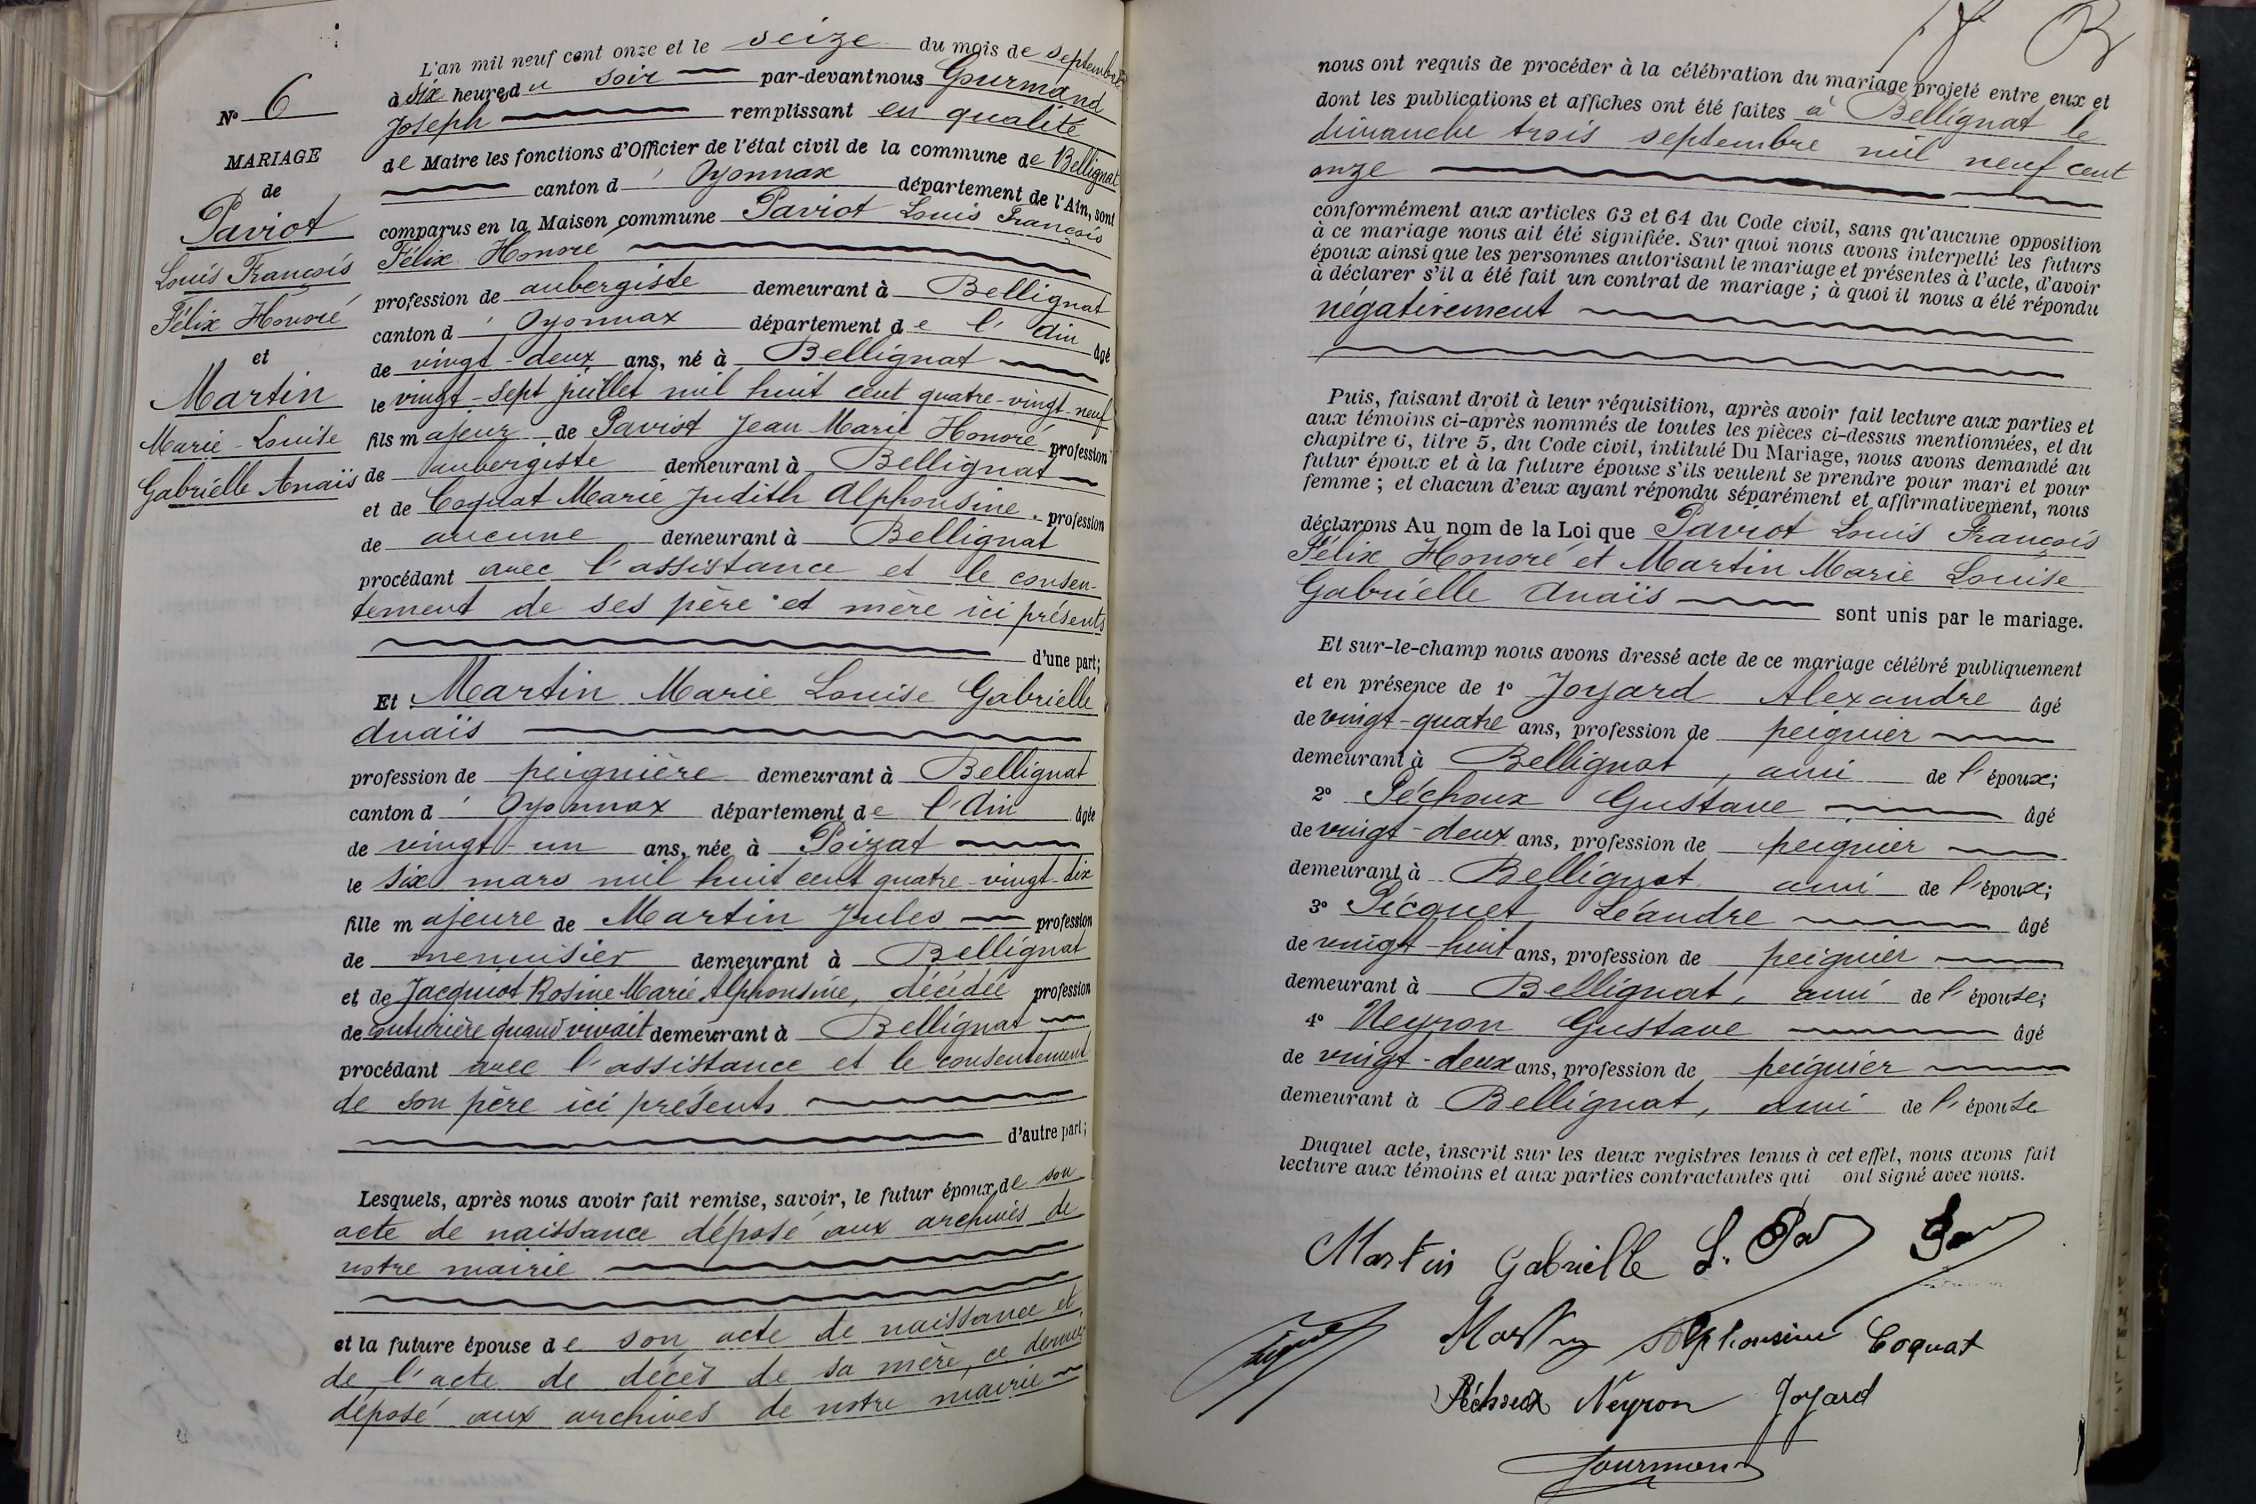 N° 6
MARIAGE
de
Paviot
Louis François
Félix Honoré
et
Martin
Marie-Louise
Gabriélle Anaïs
L'an mil neuf cent onze et le seize du mois de septembre
à six heures du soir par-devant nous Gourmand
Joseph remplissant en qualité
de Maire les fonctions d'Officier de l'état civil de la commune de Bellignat
canton d' Oyonnax département de l'Ain, sont
comparus en la Maison commune Paviot Louis François
Félix Honoré
profession de aubergiste demeurant à Bellignat
canton d' Oyonnax département de l'Ain âgé
de vingt-deux ans, né à Bellignat
le vingt-sept juillet mil huit cent quatre-vingt-neuf
fils majeur de Paviot Jean Marie Honoré profession
de aubergiste demeurant à Bellignat
et de Coquat Marie Judith Alphonsine profession
de aucune demeurant à Bellignat
procédant avec l'assistance et le consen-
tement de ses père et mère ici présents
d'une part;
Et Martin Marie Louise Gabriélle
Anaïs
profession de peignière demeurant à Bellignat
canton d' Oyonnax département de l'Ain âgée
de vingt-un ans, née à Poizat
le six mars mil huit cent quatre-vingt-dix
fille majeure de Martin Jules profession
de menuisier demeurant à Bellignat
et de Jacquiot Rosine Marie Alphonsine, décédée profession
de couturière quand vivait demeurant à Bellignat
procédant avec l'assistance et le consentement
de son père ici présents
d'autre part;
Lesquels, après nous avoir fait remise, savoir, le futur époux, de son
acte de naissance déposé aux archives de
notre mairie
et la future épouse de son acte de naissance et
de l'acte de décès de sa mère, ce dernier
déposé aux archives de notre mairie
nous ont requis de procéder à la célébration du mariage projeté entre eux et
dont les publications et affiches ont été faites à Bellignat le
dimanche trois septembre mil neuf cent
onze
conformément aux articles 63 et 64 du Code civil, sans qu'aucune opposition
à ce mariage nous ait été signifiée. Sur quoi nous avons interpellé les futurs
époux ainsi que les personnes autorisant le mariage et présentes à l'acte, d'avoir
à déclarer s'il a été fait un contrat de mariage ; à quoi il nous a été répondu
négativement
Puis, faisant droit à leur réquisition, après avoir fait lecture aux parties et
aux témoins ci-après nommés de toutes les pièces ci-dessus mentionnées, et du
chapitre 6, titre 5, du Code civil, intitulé Du Mariage, nous avons demandé au
futur époux et à la future épouse s'ils veulent se prendre pour mari et pour
femme ; et chacun d'eux ayant répondu séparément et affirmativement, nous
déclarons Au nom de la Loi que Paviot Louis François
Félix Honoré et Martin Marie Louise
Gabriélle Anaïs sont unis par le mariage.
Et sur-le-champ nous avons dressé acte de ce mariage célébré publiquement
et en présence de 1° Joyard Alexandre âgé
de vingt-quatre ans, profession de peignier
demeurant à Bellignat, ami de l'époux;
2° Péchoux Gustave âgé
de vingt-deux ans, profession de peignier
demeurant à Bellignat ami de l'époux;
3° Picquet Léandre âgé
de vingt-huit ans, profession de peignier
demeurant à Bellignat, ami de l'épouse;
4° Neyron Gustave âgé
de vingt-deux ans, profession de peignier
demeurant à Bellignat, ami de l'épouse
Duquel acte, inscrit sur les deux registres tenus à cet effet, nous avons fait
lecture aux témoins et aux parties contractantes qui ont signé avec nous.
Martin Gabrielle L. Pa
Martin Alphonsine Coquat
Péchoux Neyron Joyard
Gourmand